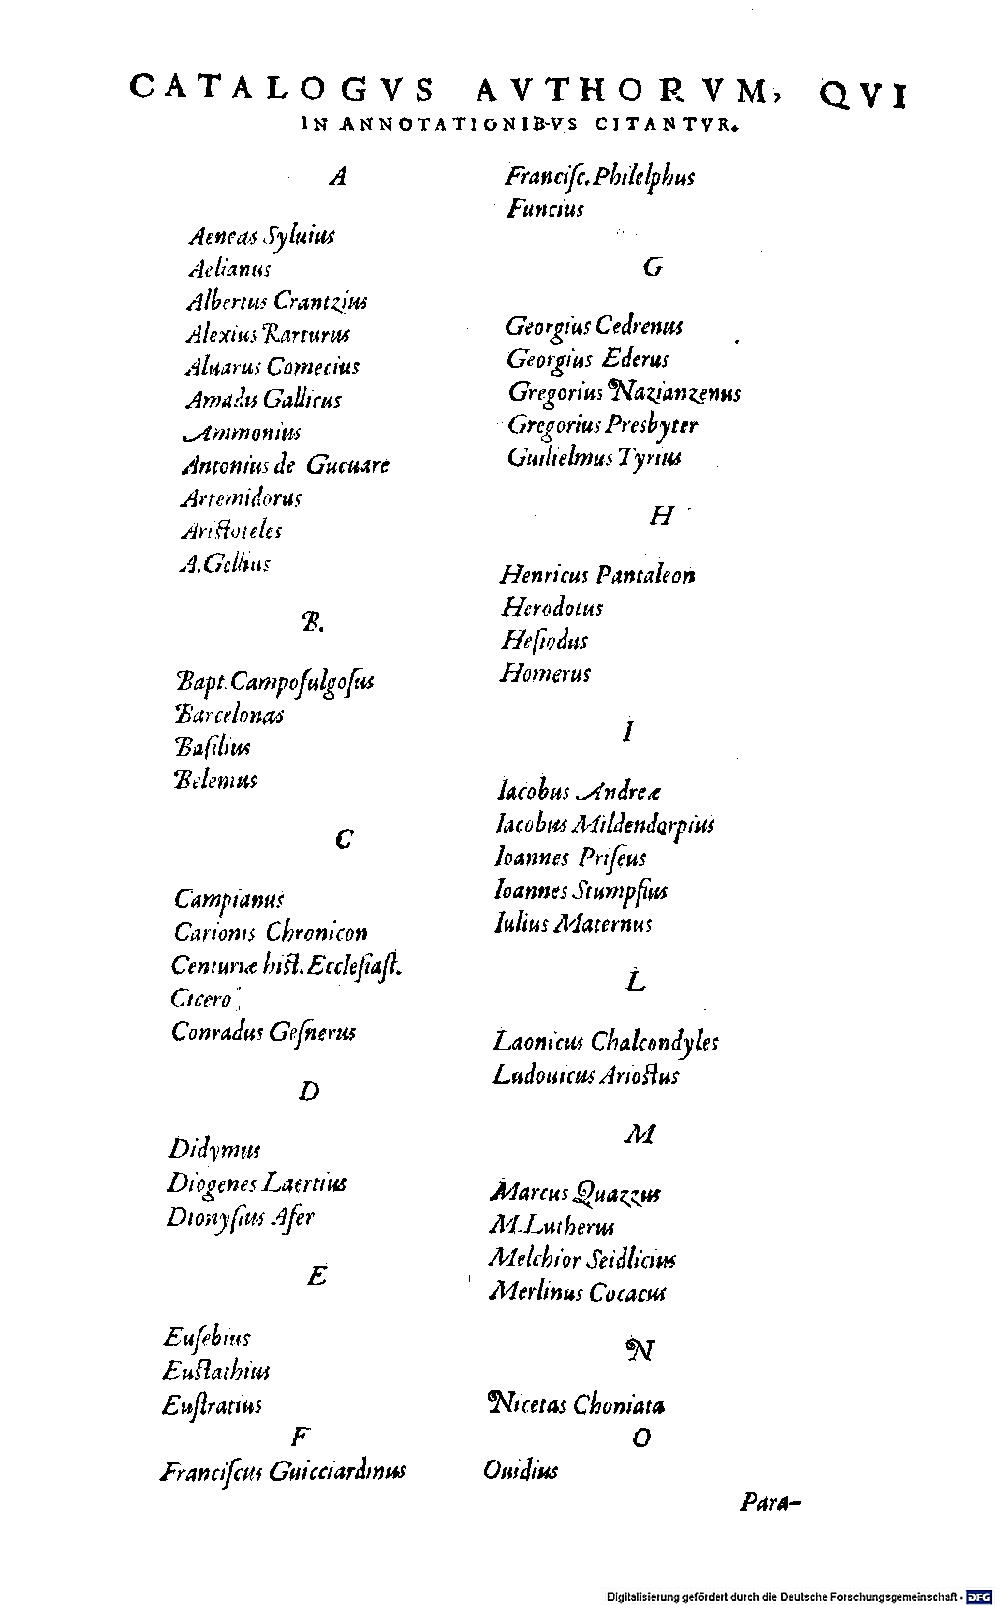 CATALOGVS AVTHORVM, QVI
IN ANNOTATIONIBVS CITANTVR.
A
Aeneas Syluius
Aelianus
Albertus Crantzius
Alexius Rarturus
Aluarus Comecius
Amadis Gallicus
Ammonius
Antonius de Gueuare
Artemidorus
Aristoteles
A. Gellius
B.
Bapt. Campofulgosus
Barcelonas
Basilius
Belenius
C
Campianus
Carionis Chronicon
Centuriæ hist. Ecclesiast.
Cicero
Conradus Gesnerus
D
Didymus
Diogenes Laertius
Dionysius Afer
E
Eusebius
Eustathius
Eustratius
F
Franciscus Guicciardinus
Francisc. Philelphus
Funcius
G
Georgius Cedrenus
Georgius Ederus
Gregorius Nazianzenus
Gregorius Presbyter
Guilielmus Tyrius
H
Henricus Pantaleon
Herodotus
Hesiodus
Homerus
I
Iacobus Andreæ
Iacobus Mildendorpius
Ioannes Priseus
Ioannes Stumpfius
Iulius Maternus
L
Laonicus Chalcondyles
Ludouicus Ariostus
M
Marcus Quazzus
M. Lutherus
Melchior Seidlicius
Merlinus Cocacus
N
Nicetas Choniata
O
Ouidius
Para-
Digitalisierung gefördert durch die Deutsche Forschungsgemeinschaft - DFG